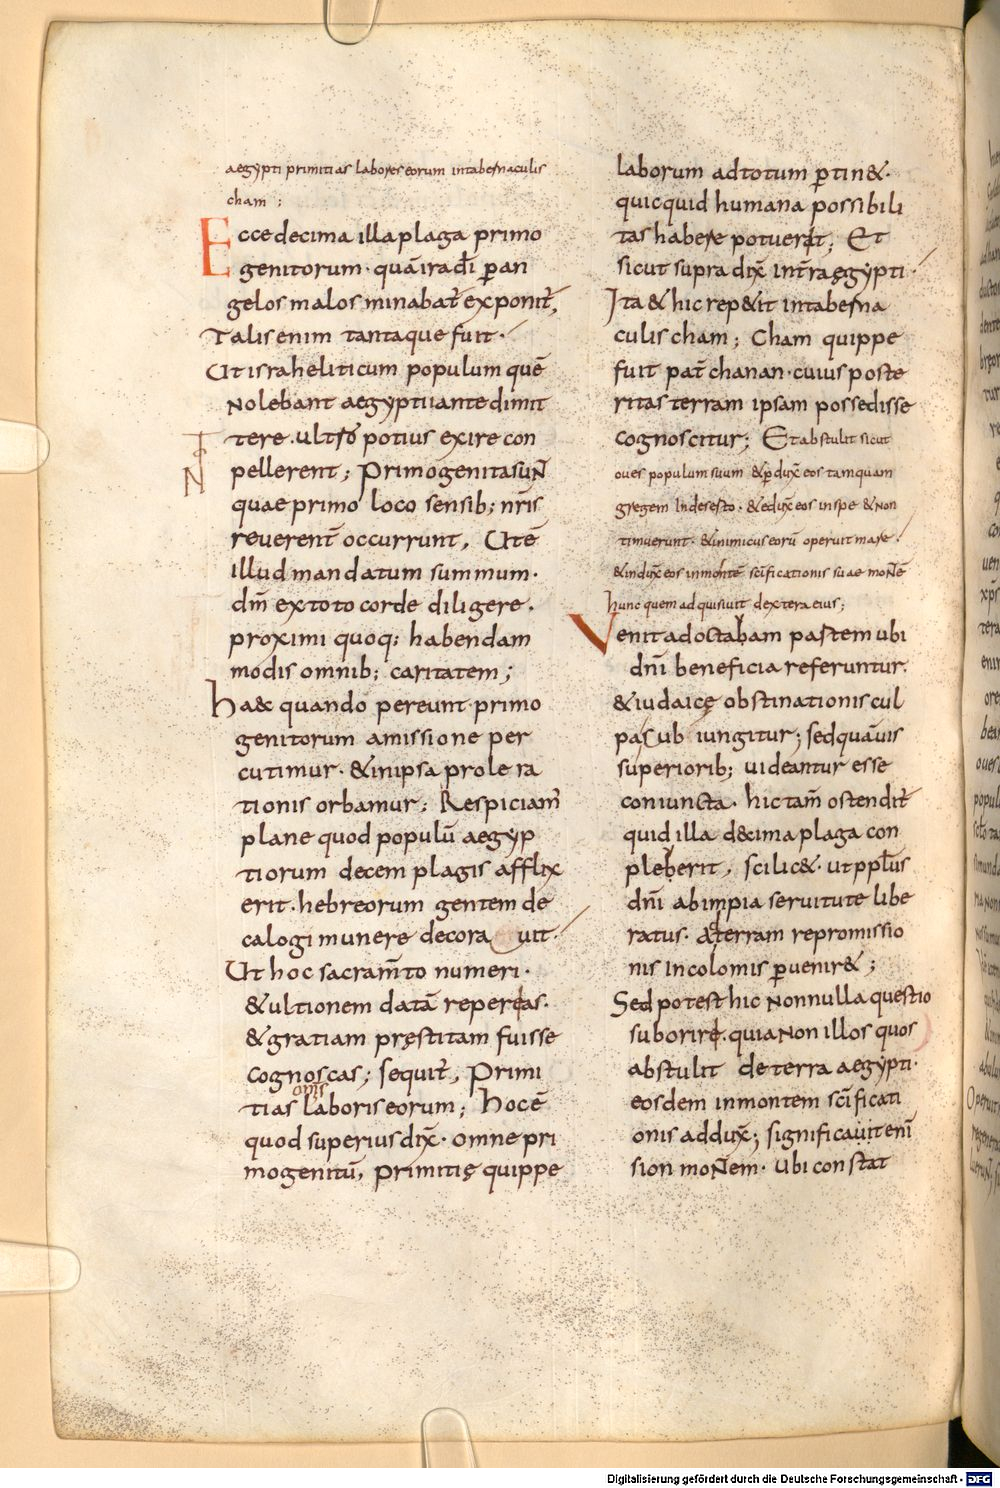 aegypti primitias labores eorum intabernaculis
cham ;
Ecce decima illa plaga primo
genitorum· quā ira dī p̄ an
gelos malos minabat̄ exponit̄,
Talis enim tantaque fuit·
Ut israheliticum populum quē
nolebant aegyptii ante dimit
tere· ultro potius exire con
pellerent; Primogenita sunt
quae primo loco sensib; nrīs
reverent̄ occurrunt, Ut ē
illud mandatum summum·
dnī ex toto corde diligere·
proximi quoq; habendam
modis omnib; caritatem;
Haec quando pereunt· primo
genitorum amissione per
cutimur· & in ipsa prole ra
tionis orbamur; Respiciam̄
plane quod populū aegyp
tiorum decem plagis afflix
erit· hebreorum gentem de
calogi munere decora uit·
Ut hoc sacram̄to numeri·
& ultionem datā reperias·
& gratiam pręstitam fuisse
cognoscas; sequit̄, Primi
omīs
tias laboris eorum; Hoc ē
quod superius dix̄· omne pri
mogenitū, primitię quippe
laborum ad totum p̄tin&·
quicquid humana possibili
tas habere potuerit; Et
sicut supra dix̄ int̄ra ęgypti·
Ita & hic rep&it in taberna
culis cham; Cham quippe
fuit pat̄ chanan· cuius poste
ritas terram ipsam possedisse
cognoscitur; Et abstulit sicut
oves populum suum & p̄dux̄ eos tamquam
gregem in deserto· & edux̄ eos in spe & non
timuerunt· & inimicus eorū operuit mare·
& indux̄ eos in montē scīficationis suae montē
hunc quem adquisiuit dextera eius;
Venit ad octabam partem ubi
dnī beneficia referuntur·
& iudaicę obstinationis cul
pa sub iungitur; sed quāuis
superiorib; uideantur esse
coniuncta· hic tam̄ ostendit̄
quid illa decima plaga con
pleberit, scilic&· ut pplūs
dnī ab impia seruitute libe
ratus· ad terram repromissio
nis incolomis p̄uenir&;
Sed potest hic nonnulla questio
suborire· quia non illos quos
abstulit de terra aegypti·
eosdem in montem scīficati
onis addux̄; significauit enī
sion montem· ubi constat
Digitalisierung gefördert durch die Deutsche Forschungsgemeinschaft · DFG